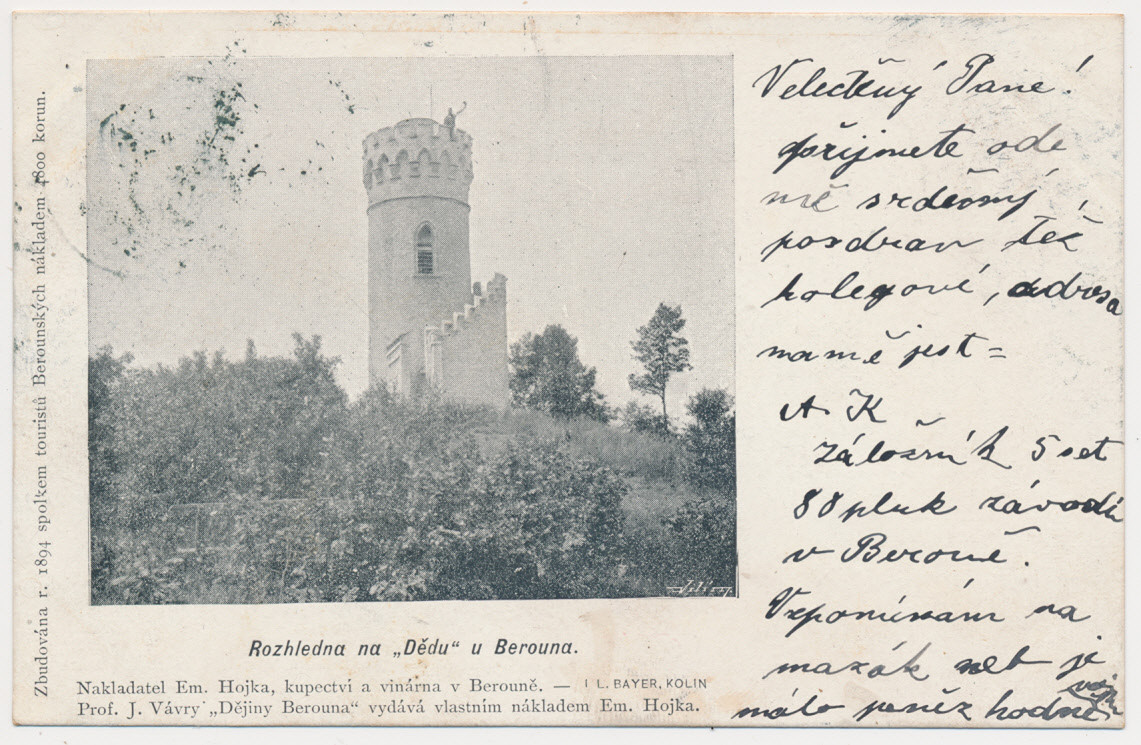 Zbudována r. 1894 spolkem touristů Berounských nákladem 4800 korun.
Rozhledna na „Dědu“ u Berouna.
Nakladatel Em. Hojka, kupectví a vinárna v Berouně. — I L. BAYER, KOLIN
Prof. J. Vávry „Dějiny Berouna“ vydává vlastním nákladem Em. Hojka.
Velectěný Pane!
přijmete ode
mě srdečný
pozdrav též
kolegové, adresa
na mě jest =
A. K
záložník 5 set
88 pluk závodí
v Berouně.
Vzpomínám na
mazák neb je
málo peněz hodně